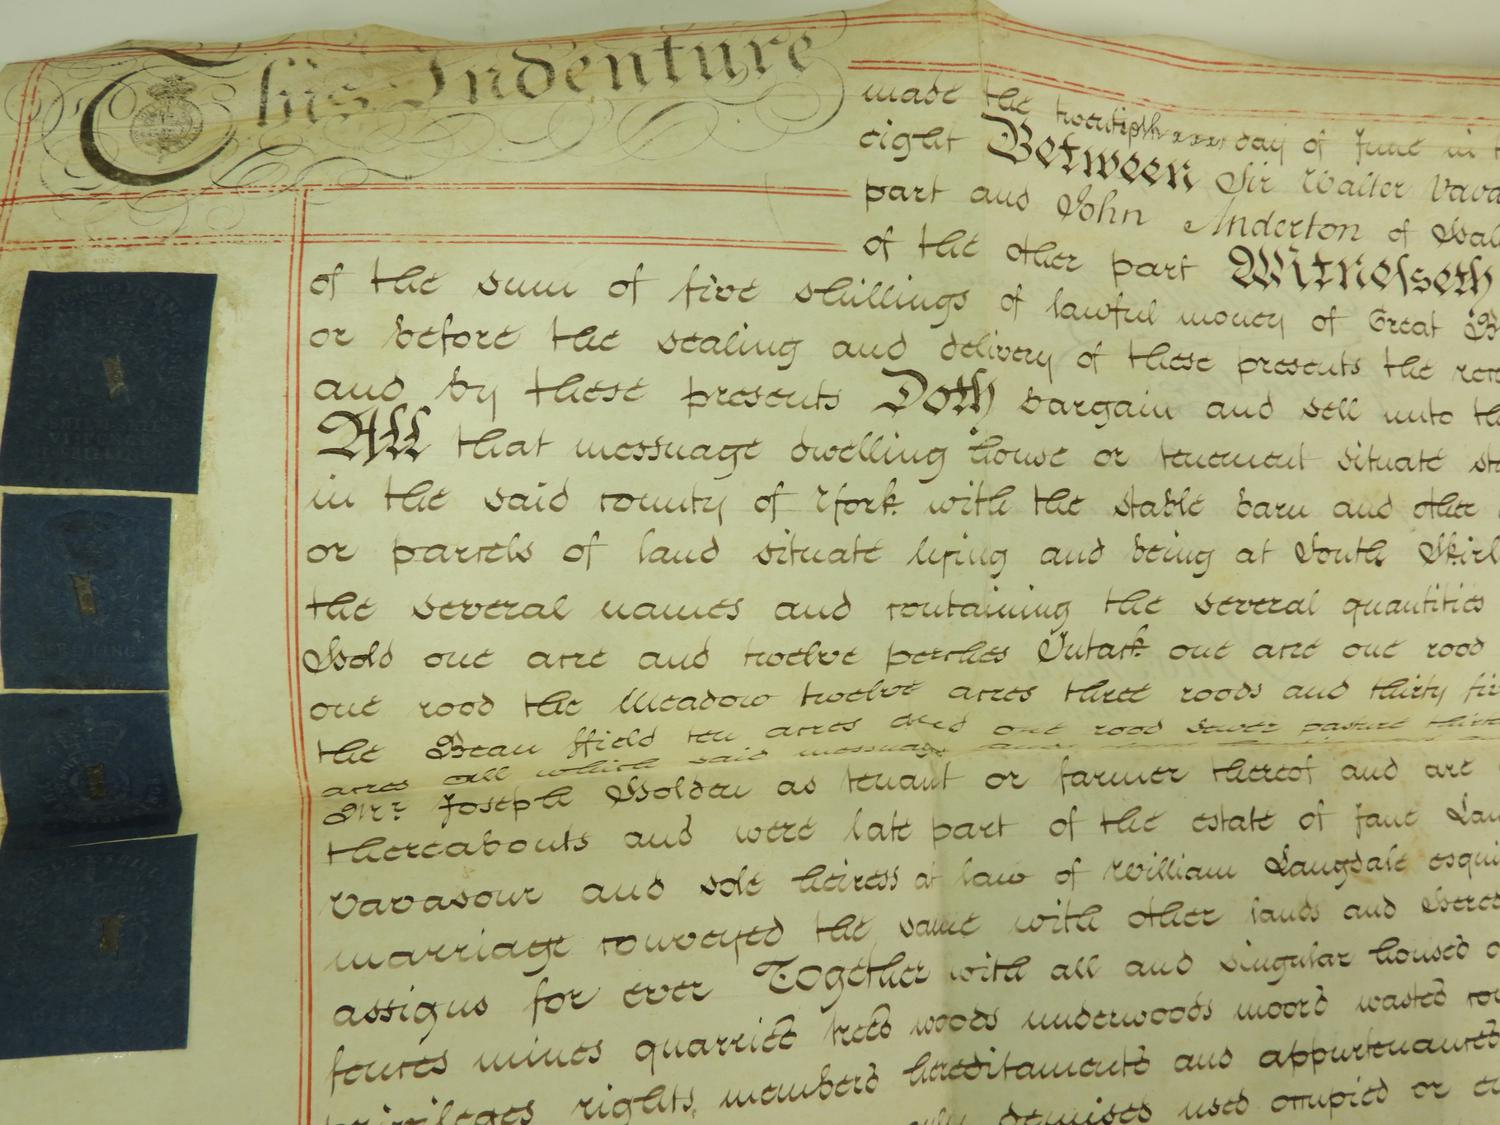 This Indenture
made the twentieth day of June in
eight Between Sir Walter
part and John Anderton of
of the other part Witnesseth
of the sum of five shillings of lawful money of Great
or before the sealing and delivery of these presents the
and by these presents Doth bargain and sell unto
All that messuage dwelling house or tenement situate
in the said county of York with the stable barn and other
or parcels of land situate lying and being at South
the several names and containing the several quantities
Hold one acre and twelve perches Intack one acre one rood
one rood the Meadow twelve acres three roods and thirty
the Bean ffield ten acres and one rood pasture
acres all which said messuage
Mr. Joseph Holden as tenant or farmer thereof and are
thereabouts and were late part of the estate of Jane
Vavasour and sole heiress at law of William Langdale
marriage conveyed the same with other lands and
assigns for ever Together with all and singular houses
fences mines quarries trees woods underwoods moors wastes
privileges rights, members hereditaments and appurtenances
demised used occupied or